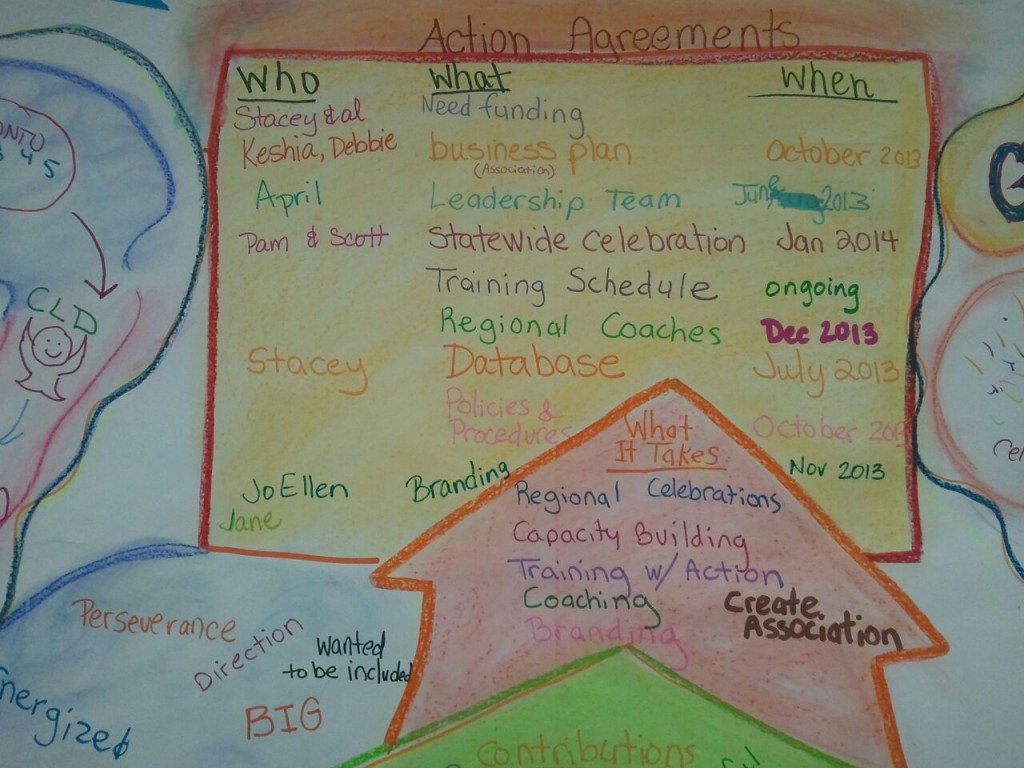 Action Agreements
Who What When
Stacey & al Need funding
Keshia, Debbie business plan October 2013
(Association)
April Leadership Team June 2013
Pam & Scott Statewide Celebration Jan 2014
Training Schedule ongoing
Regional Coaches Dec 2013
Stacey Database July 2013
Policies &
Procedures October
JoEllen Branding Nov 2013
Jane
What
It Takes
Regional Celebrations
Capacity Building
Training w/ Action
Coaching
Branding
Create
Association
Contributions
CLD
3 4 5
Perseverance
Direction
wanted
to be included
BIG
Energized